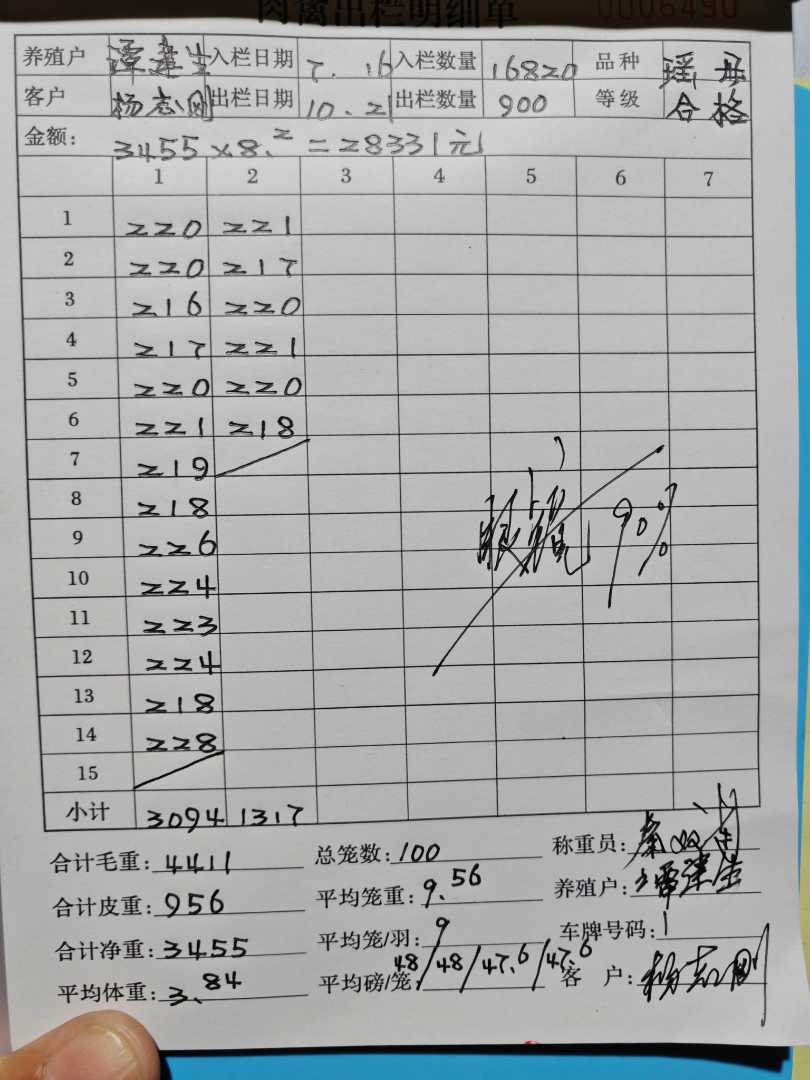 肉禽出栏明细单 0006490
养殖户 谭建生 入栏日期 7.16 入栏数量 16820 品种 瑶丹
客户 杨志刚 出栏日期 10.21 出栏数量 900 等级 合格
金额: 3455×8.2=28331元
1 2 3 4 5 6 7
1 220 221
2 220 217
3 216 220
4 217 221
5 220 220
6 221 218
7 219
8 218
9 226
10 224
11 223
12 224
13 218
14 228
15
小计 3094 1317
90%
合计毛重: 4411 总笼数: 100 称重员:
合计皮重: 956 平均笼重: 9.56 养殖户: 谭建生
合计净重: 3455 平均笼/羽: 9 车牌号码: 1
平均体重: 3.84 平均磅/笼: 48/48/47.6/47.6 客户: 杨志刚